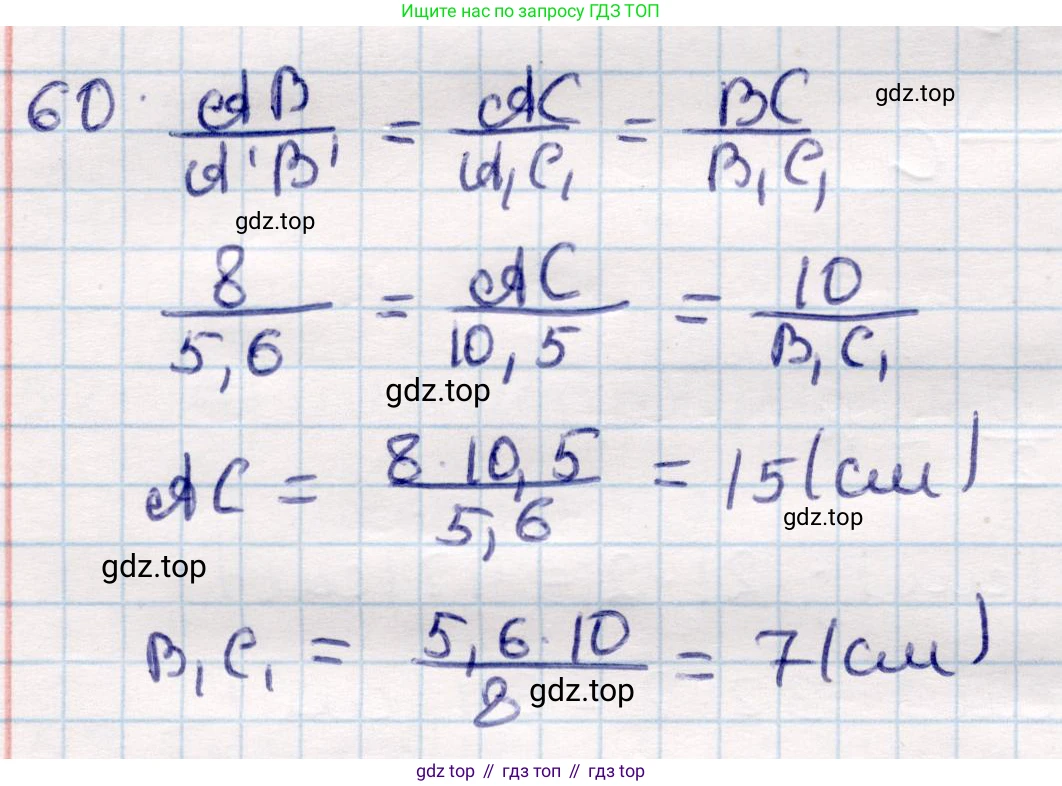 Ищите нас по запросу ГДЗ ТОП
60. AB/A'B' = AC/A₁C₁ = BC/B₁C₁
gdz.top
gdz.top
8/5,6 = AC/10,5 = 10/B₁C₁
gdz.top
AC = 8·10,5/5,6 = 15(см)
gdz.top
gdz.top
B₁C₁ = 5,6·10/8 = 7(см)
gdz.top
gdz top // гдз топ // gdz top